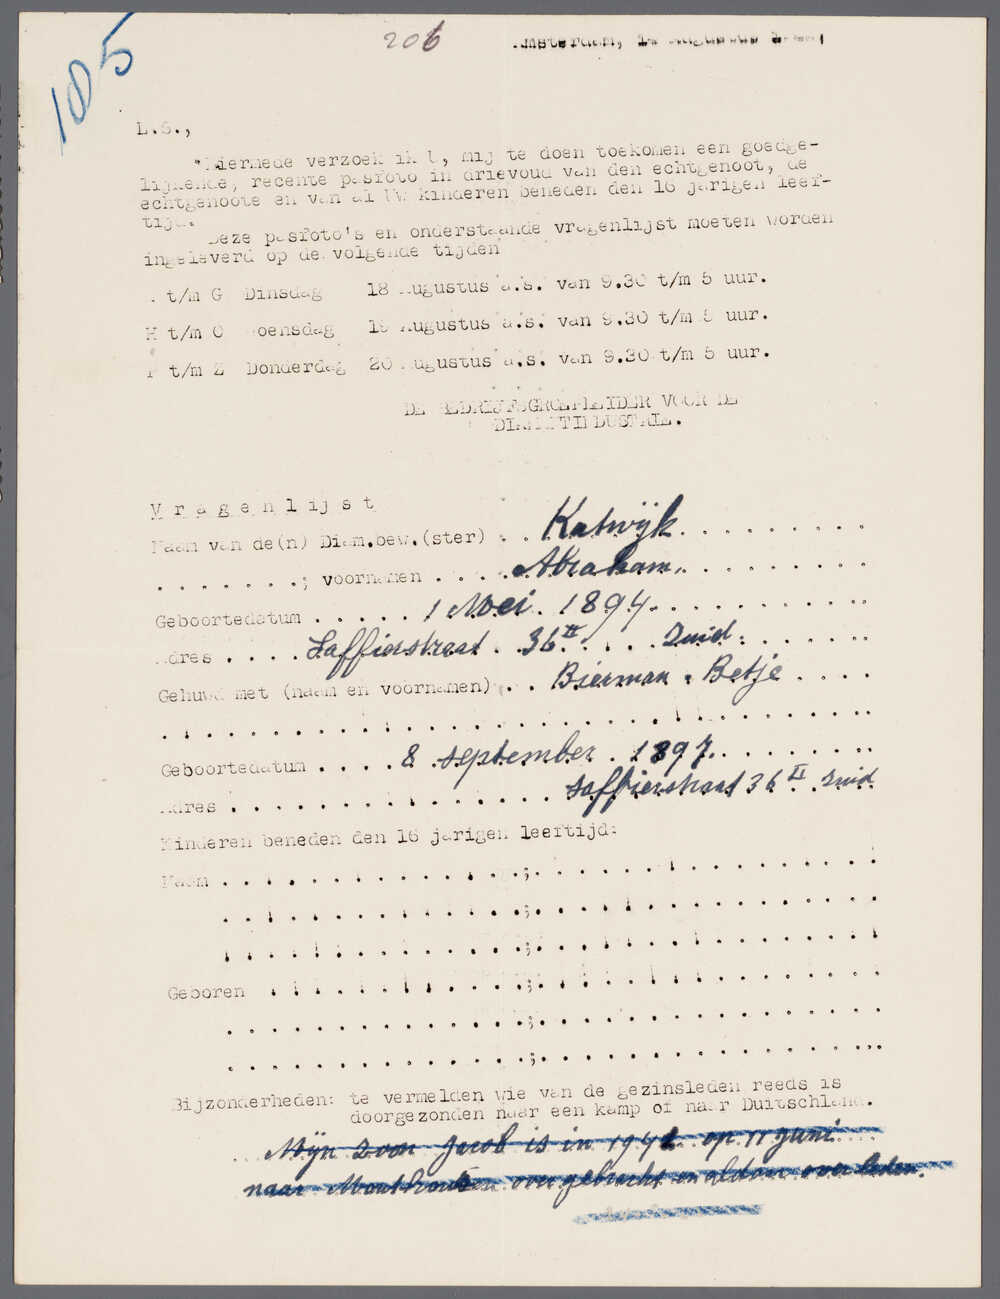 105
206
Amsterdam, 14 Augustus
L.S.,
Hiermede verzoek ik U, mij te doen toekomen een goedge-
lijkende, recente pasfoto in drievoud van den echtgenoot, de
echtgenoote en van al Uw kinderen beneden den 16 jarigen leef-
tijd.
Deze pasfoto's en onderstaande vragenlijst moeten worden
ingeleverd op de volgende tijden
A t/m G Dinsdag 18 Augustus a.s. van 9.30 t/m 5 uur.
H t/m O Woensdag 19 Augustus a.s. van 9.30 t/m 5 uur.
P t/m Z Donderdag 20 Augustus a.s. van 9.30 t/m 5 uur.
DE BEDRIJFSGROEPLEIDER VOOR DE
DIAMANTINDUSTRIE.
Vragenlijst
Naam van de(n) Diam.bew.(ster) . . Katwijk . . . . . . . . .
. . . . . . . .; voornamen . . . . Abraham. . . . . . . . . .
Geboortedatum . . . . . 1 Mei. 1894. . . . . . . . . . .
Adres . . . . Saffierstraat. 36 II . . . . . Zuid. . . . . . .
Gehuwd met (naam en voornamen) . . Bierman . Betje . . . .
. . . . . . . . . . . . . . . . . . . . . . . . . . . . . . . .
Geboortedatum . . . . 8 september. 1897. . . . . . . . .
Adres . . . . . . . . . . . . . . . Saffierstraat 36 II. Zuid
Kinderen beneden den 16 jarigen leeftijd:
Naam . . . . . . . . . . . . . .;. . . . . . . . . . . . . . . .
. . . . . . . . . . . . . .;. . . . . . . . . . . . . . . .
. . . . . . . . . . . . . .;. . . . . . . . . . . . . . . .
Geboren . . . . . . . . . . . .;. . . . . . . . . . . . . . . .
. . . . . . . . . . . . . .;. . . . . . . . . . . . . . . .
. . . . . . . . . . . . . .;. . . . . . . . . . . . . . . .
Bijzonderheden: te vermelden wie van de gezinsleden reeds is
doorgezonden naar een kamp of naar Duitschland.
. . . Mijn Zoon Jacob is in 1941 op 11 juni . . .
naar Mouthousen overgebracht en aldaar overleden.